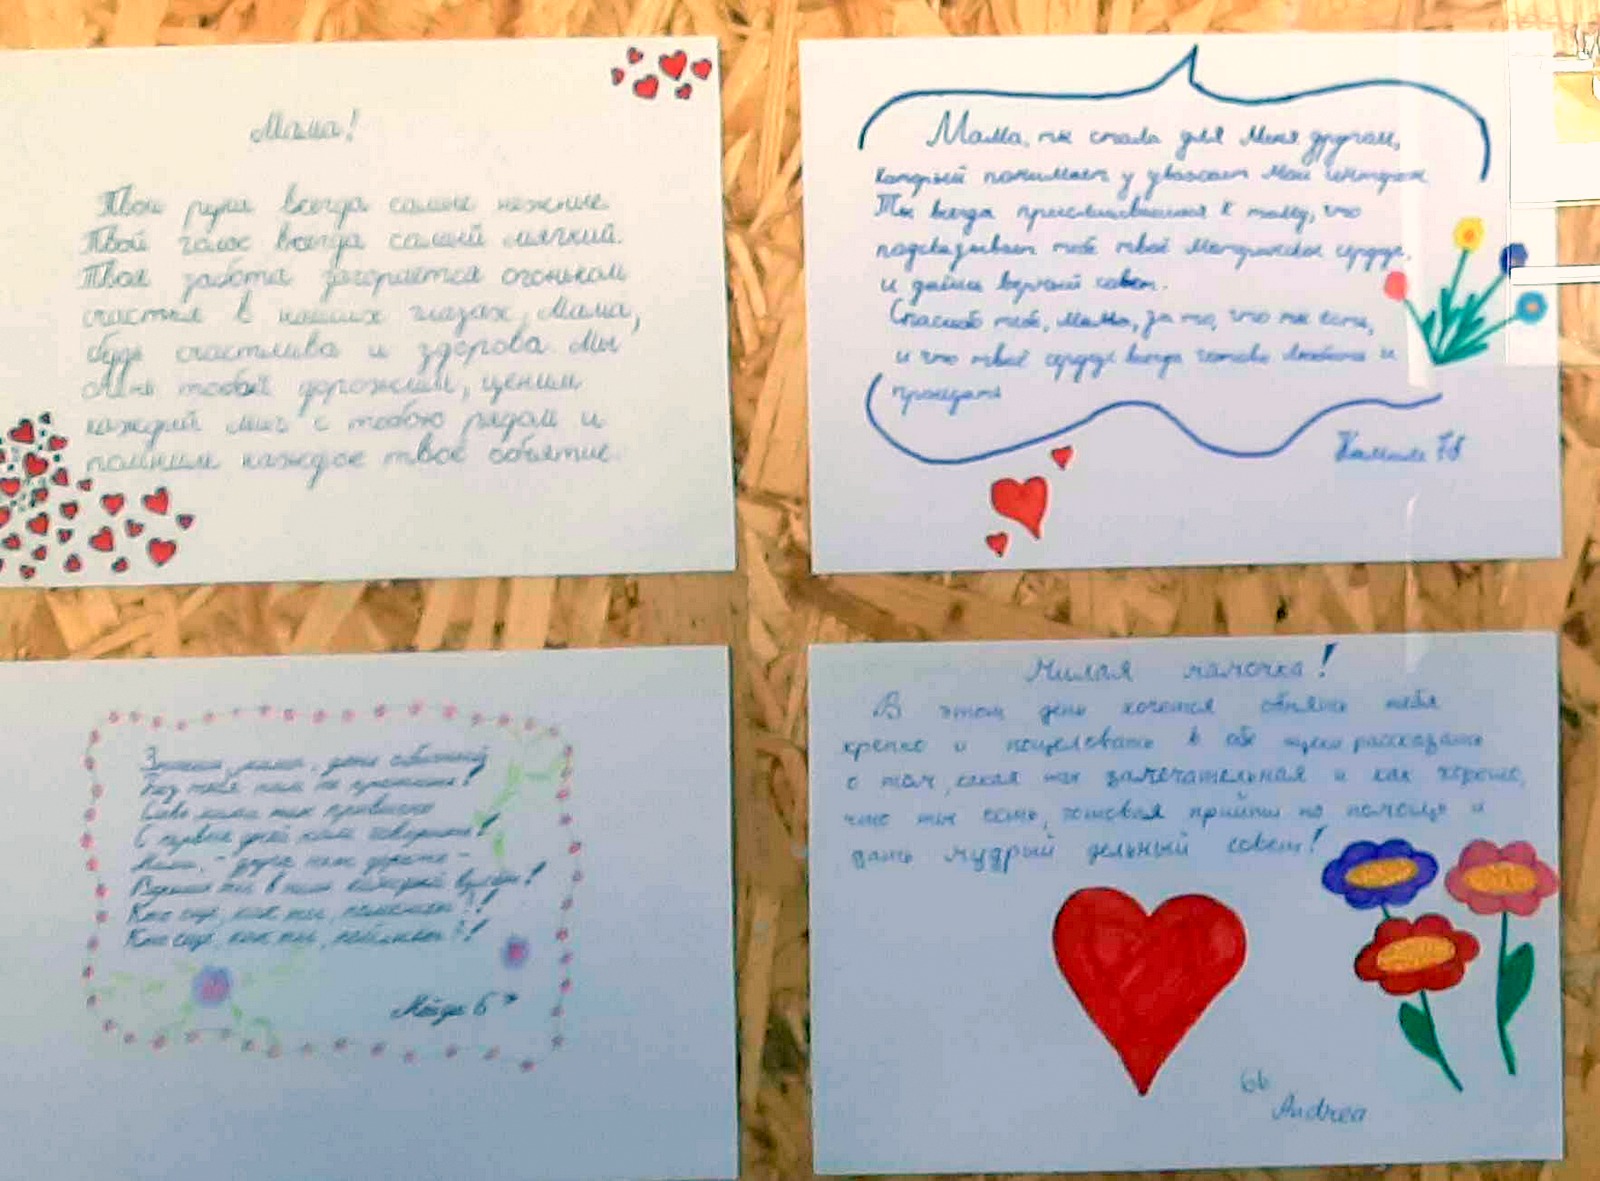 Мама!
Твои руки всегда самые нежные
Твой голос всегда самый мягкий.
Твоя забота загорается огоньком
счастья в наших глазах. Мама,
будь счастлива и здорова. Мы
тобой дорожим, ценим
каждый миг с тобою рядом и
помним каждое твоё объятие.
Мама, ты стала для меня другом,
который понимает у уважает мой
Ты всегда к тому, что
подсказывает тебе твоё материнское сердце,
и даёшь верный совет.
Спасибо тебе, мама, за то, что ты есть,
и что твоё сердце всегда готово любить и
прощать
7б
мама, день
Без тебя нам не прожить!
Слово мама так привычно
С первых дней нам говорить!
Кто ещё, как ты, поможет?!
Кто ещё, как ты, поймёт?!
6
Милая мамочка!
В этот день хочется обнять тебя
крепко и поцеловать в обе щеки рассказать
о том, какая ты замечательная и как хорошо,
что ты есть, готовая прийти на помощь и
дать мудрый дельный совет!
6b
Andrea